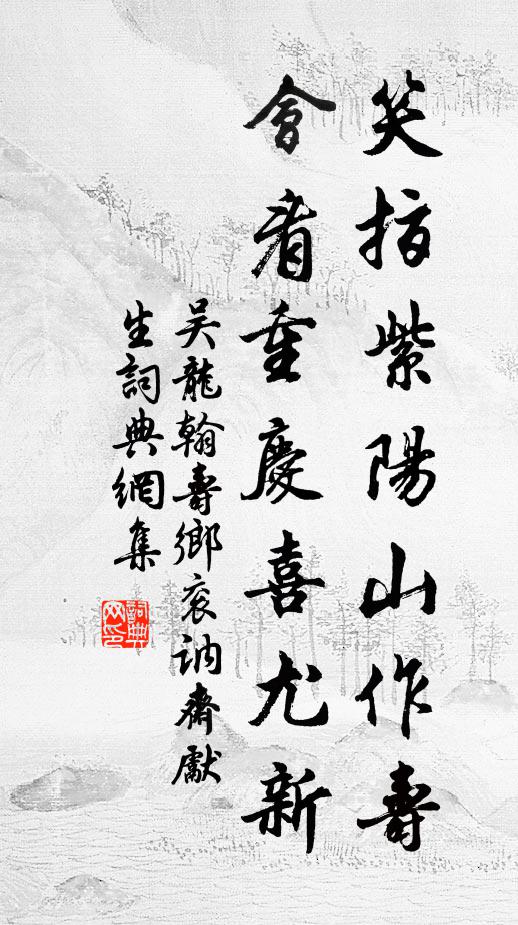 笑指紫陽山作壽
會看重慶喜尤新
吳龍翰壽鄉袞訥齋獻
生詞典網集
詞典
网印